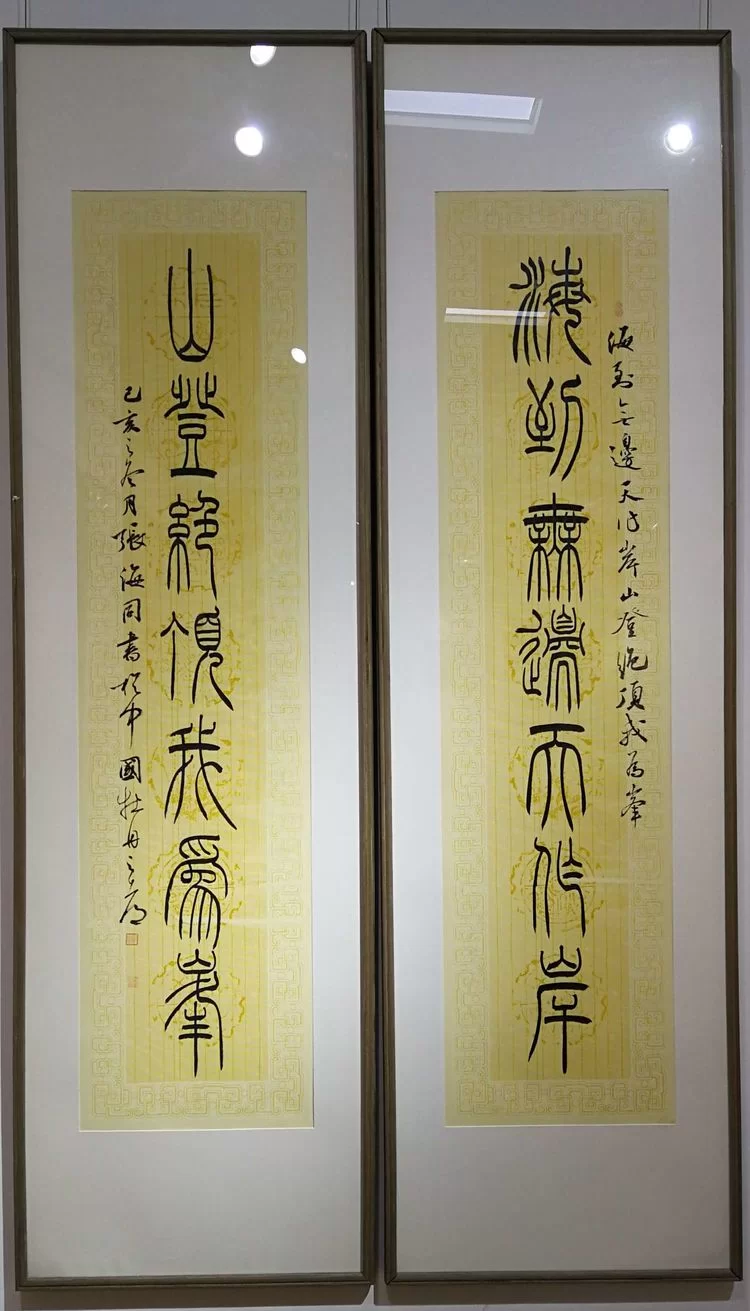 海到無邊天作岸山登絕頂我為峯
海到無邊天作岸
山登絕頂我爲峯
己亥之冬月張海同書於中國牡丹之都